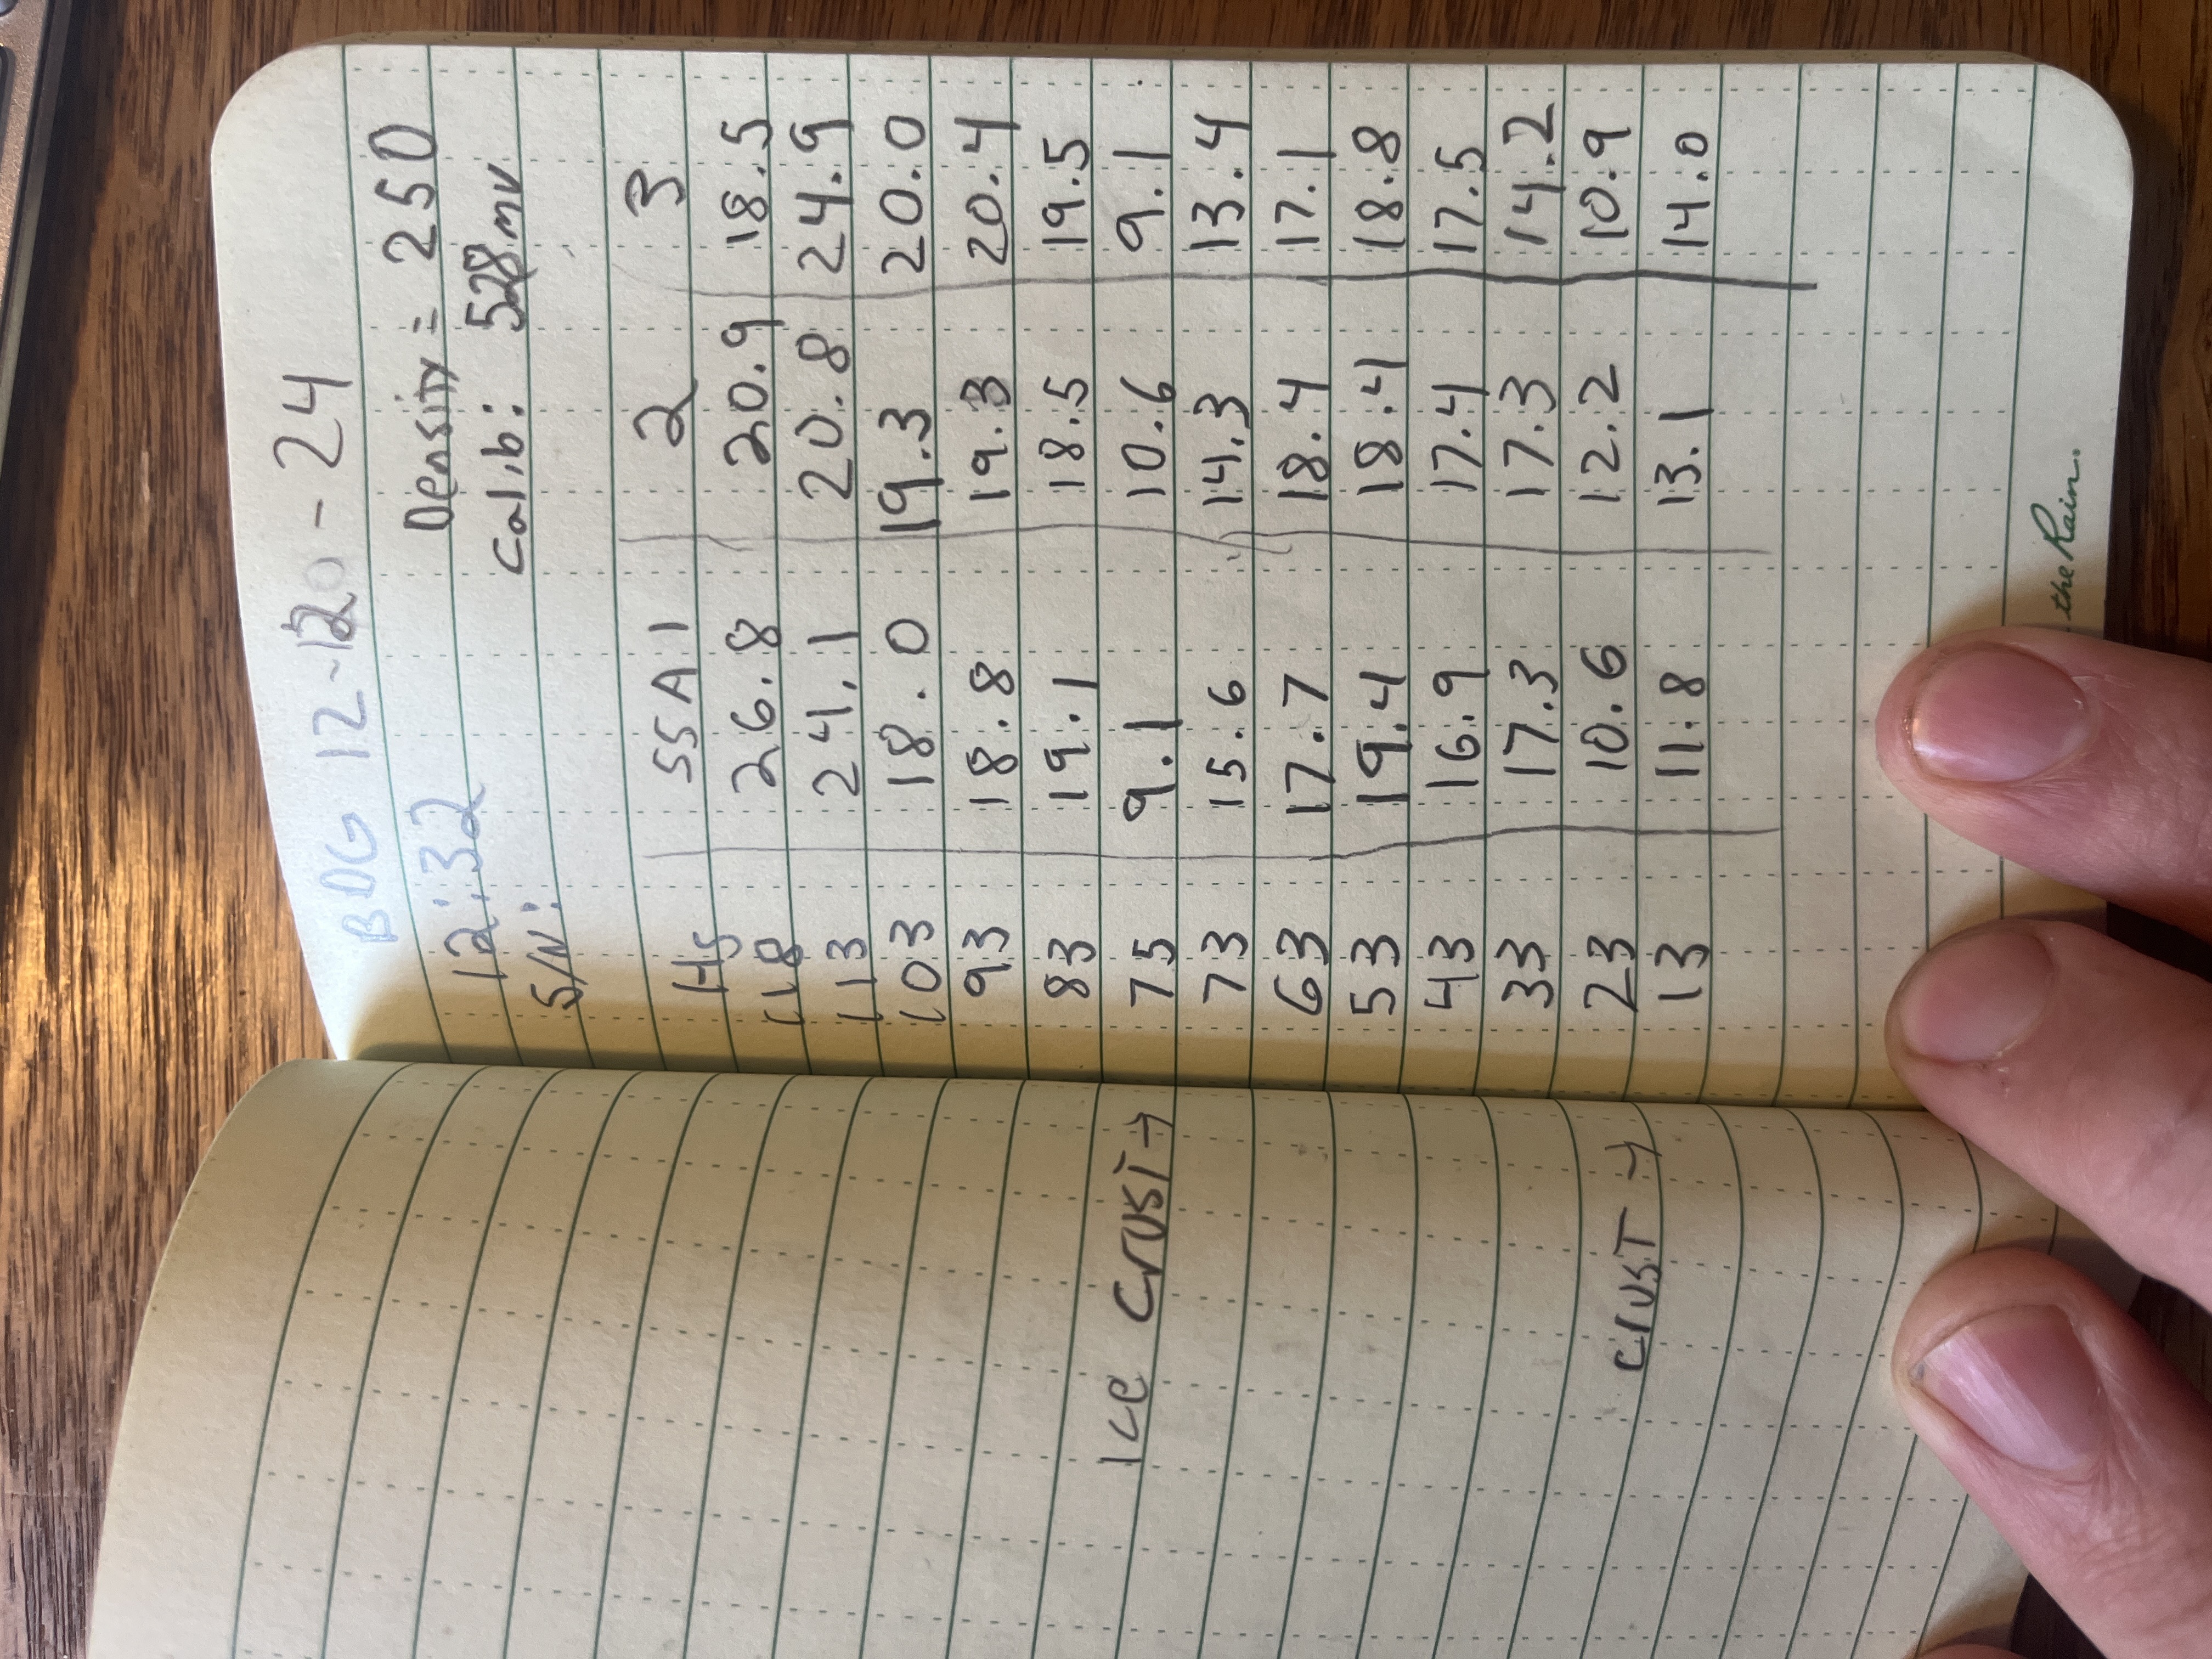 BDG 12-12-24
12:32 Density = 250
S/N: Calib: 528mv
Hs SSA 1 2 3
118 26.8 20.9 18.5
113 24.1 20.8 24.9
103 18.0 19.3 20.0
93 18.8 19.3 20.4
83 19.1 18.5 19.5
Ice crust → 75 9.1 10.6 9.1
73 15.6 14.3 13.4
63 17.7 18.4 17.1
53 19.4 18.4 18.8
43 16.9 17.4 17.5
33 17.3 17.3 14.2
crust → 23 10.6 12.2 10.9
13 11.8 13.1 14.0
the Rain.